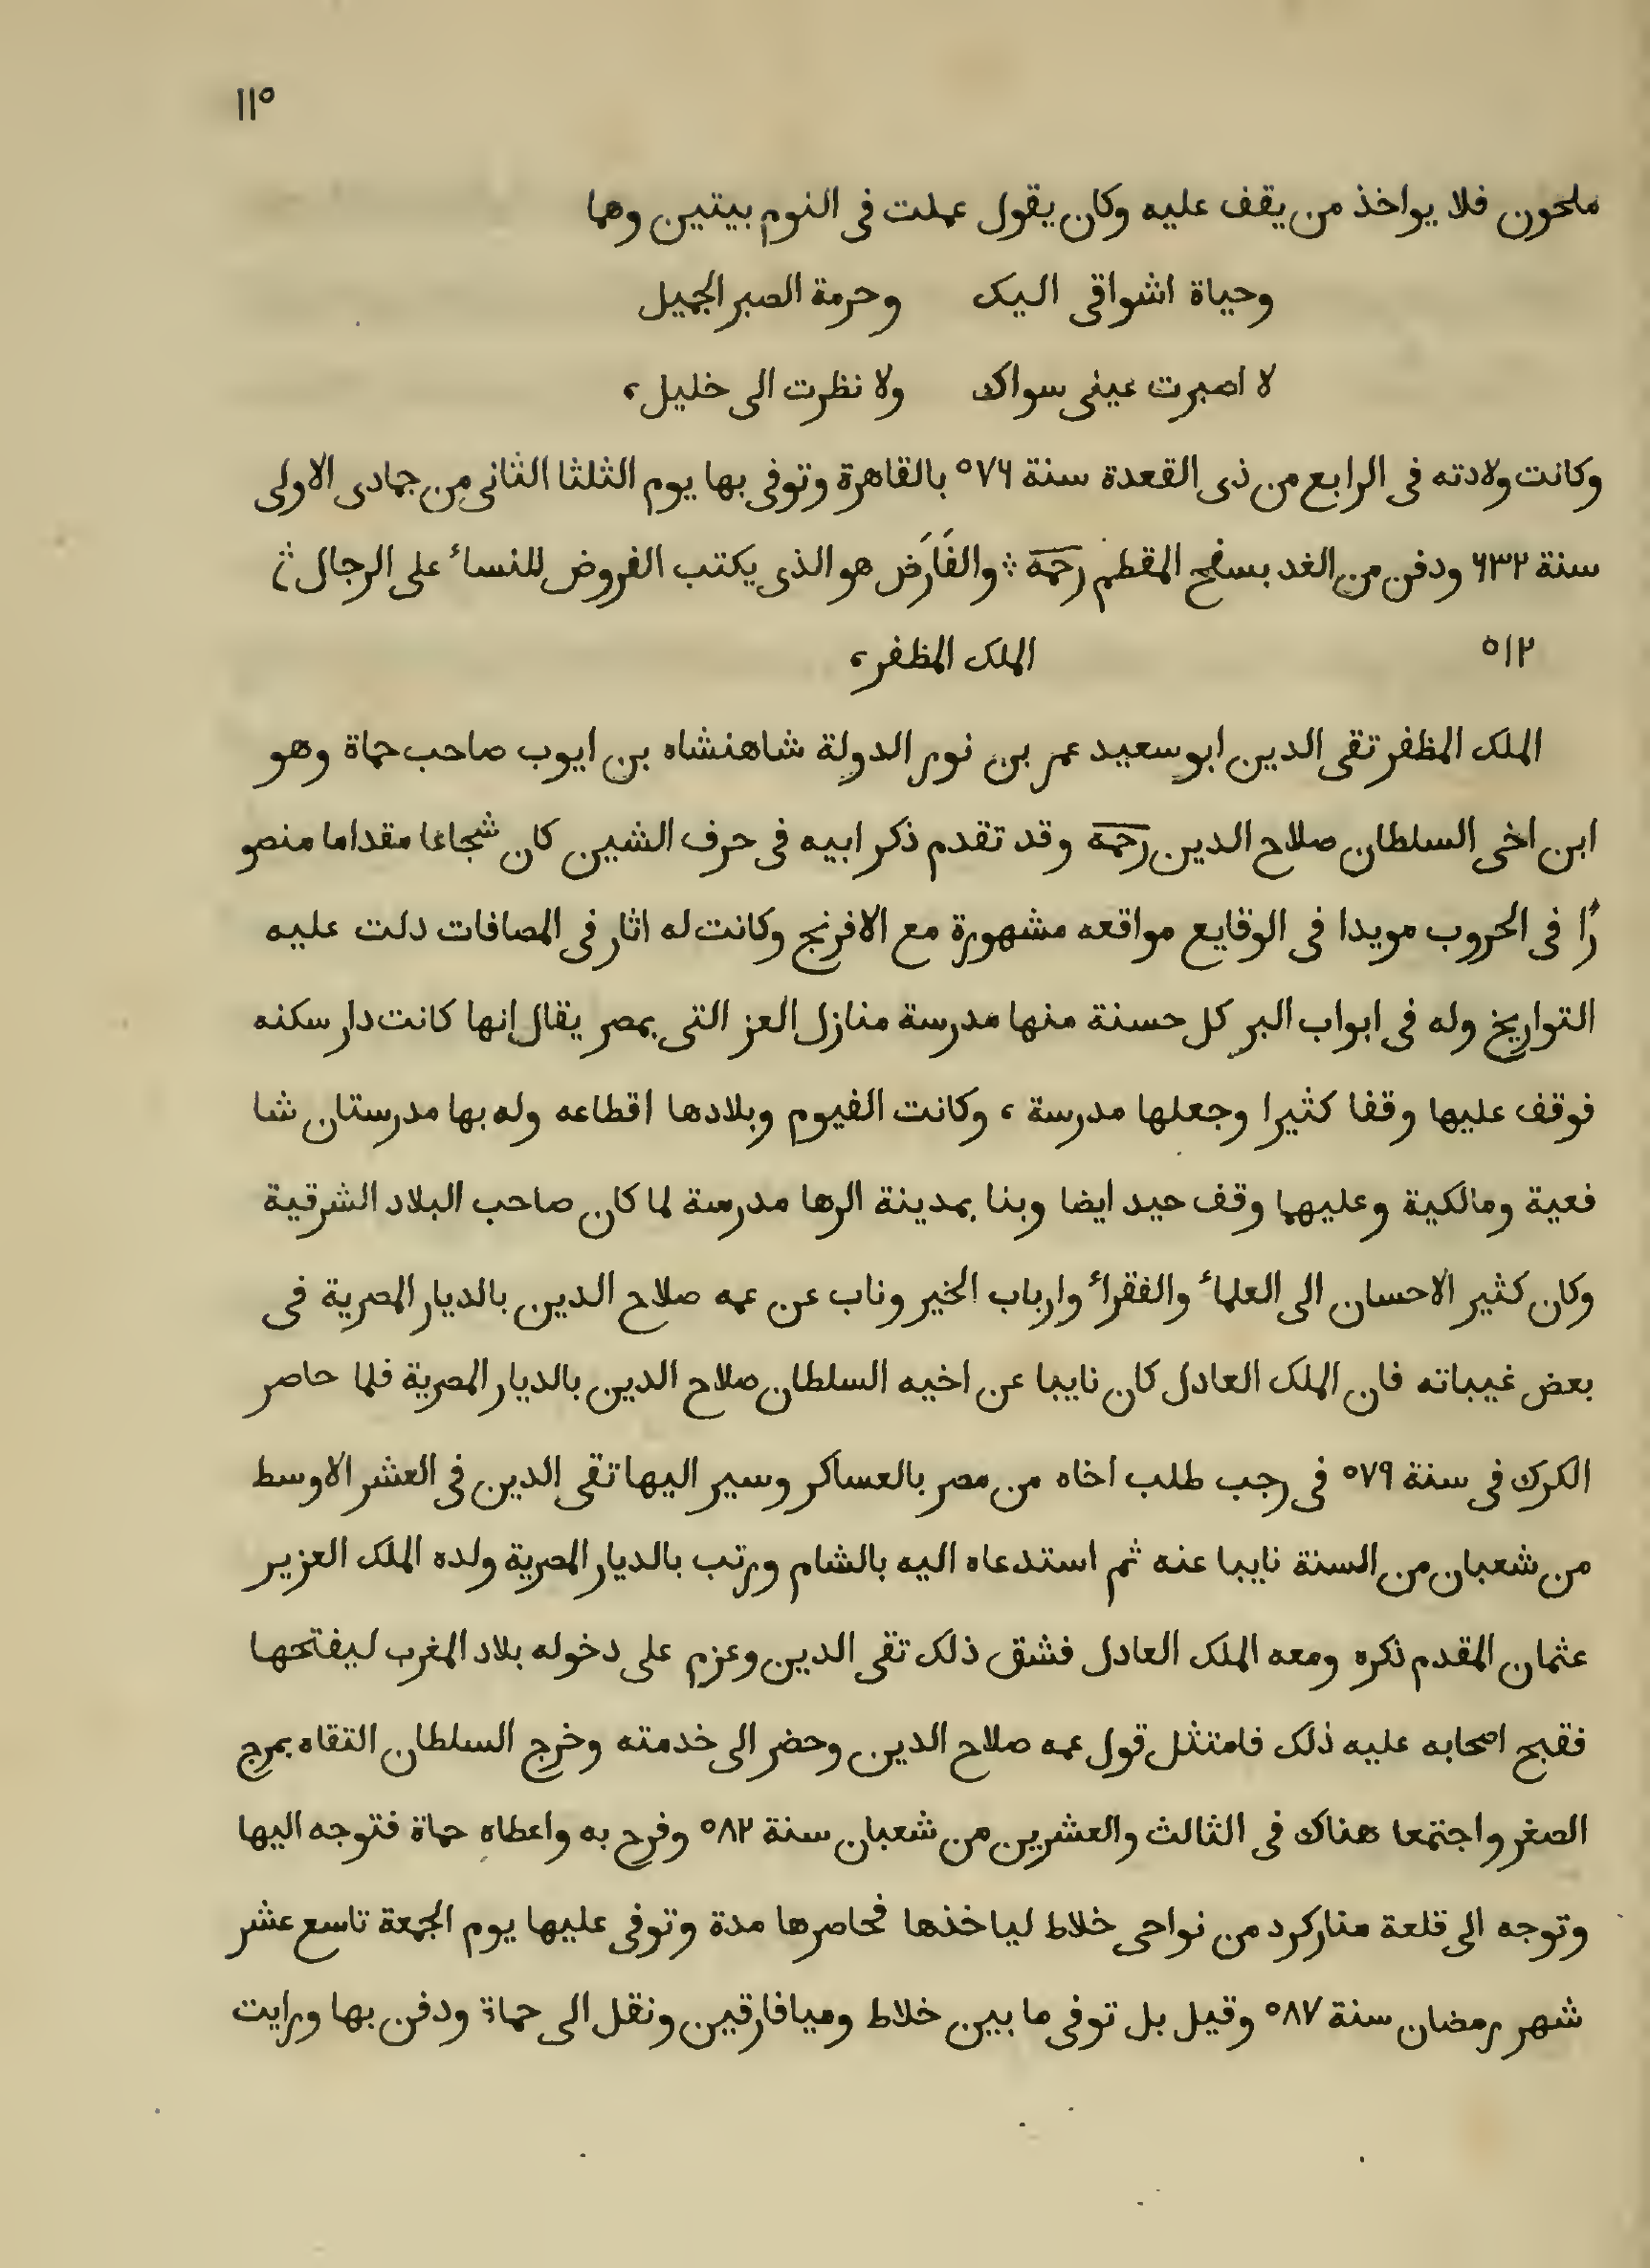 ١١٥
ملحون فلا يواخذ من يقف عليه وكان يقول عملت فى النوم بيتين وهما
وحياة اشواقى اليك وحرمة الصبر الجميل
لا اصبرت عينى سواك ولا نظرت الى خليل،
وكانت ولادته فى الرابع من ذى القعدة سنة ٥٧٦ بالقاهرة وتوفى بها يوم الثلثا الثانى من جمادى الاولى
سنة ٦٣٢ ودفن من الغد بسفح المقطم رحمه ⁘ والفَارَض هو الذى يكتب الفروض للنساء على الرجال ⁘
٥١٢ الملك المظفر،
الملك المظفر تقى الدين ابو سعيد عمر بن نور الدولة شاهنشاه بن ايوب صاحب حماة وهو
ابن اخى السلطان صلاح الدين رحمه وقد تقدم ذكر ابيه فى حرف الشين كان شجاعا مقداما منصو
رًا فى الحروب مويدا فى الوقايع مواقعه مشهورة مع الافرنج وكانت له اثار فى المصافات دلت عليه
التواريخ وله فى ابواب البر كل حسنة منها مدرسة منازل العز التى بمصر يقال انها كانت دار سكنه
فوقف عليها وقفا كثيرا وجعلها مدرسة، وكانت الفيوم وبلادها اقطاعه وله بها مدرستان شا
فعية ومالكية وعليهما وقف حيد ايضا وبنا بمدينة الرها مدرسة لما كان صاحب البلاد الشرقية
وكان كثير الاحسان الى العلماء والفقراء وارباب الخير وناب عن عمه صلاح الدين بالديار المصرية فى
بعض غيباته فان الملك العادل كان نايبا عن اخيه السلطان صلاح الدين بالديار المصرية فلما حاصر
الكرك فى سنة ٥٧٩ فى رجب طلب اخاه من مصر بالعساكر وسير اليها تقى الدين فى العشر الاوسط
من شعبان من السنة نايبا عنه ثم استدعاه اليه بالشام ورتب بالديار المصرية ولده الملك العزير
عثمان المقدم ذكره ومعه الملك العادل فشق ذلك تقى الدين وعزم على دخوله بلاد المغرب ليفتحها
فقبح اصحابه عليه ذلك فامتثل قول عمه صلاح الدين وحضر الى خدمته وخرج السلطان التقاه بمرج
الصغر واجتمعا هناك فى الثالث والعشرين من شعبان سنة ٥٨٢ وفرح به واعطاه حماة فتوجه اليها
وتوجه الى قلعة مناركرد من نواحى خلاط لياخذها فحاصرها مدة وتوفى عليها يوم الجمعة تاسع عشر
شهر رمضان سنة ٥٨٧ وقيل بل توفى ما بين خلاط وميافارقين ونقل الى حماة ودفن بها ورايت